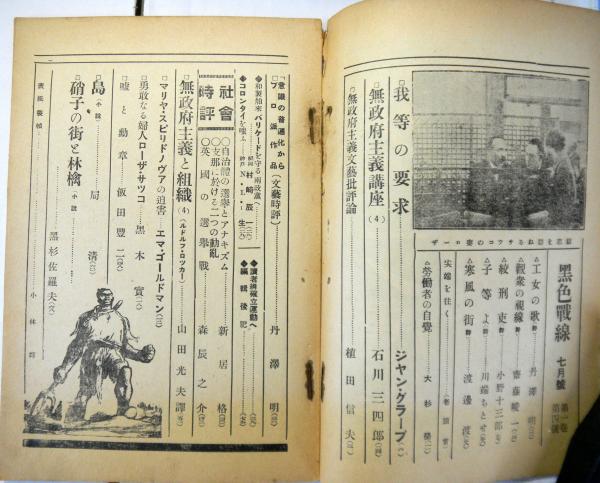 黑色戰線 七月號 第一卷第四號
△工女の歌 詩 丹澤明
△觀衆の視線 詩 齋藤峻一
△絞刑吏 詩 小野十三郎
△子等よ 詩 川端もとせ
△寒風の街 詩 渡邊渡
尖端を往く
△勞働者の自覺 大杉榮
□我等の要求 ジヤン・グラーブ
□無政府主義講座(4) 石川三四郎
□無政府主義文藝批評論 植田信夫
「意識の普遍化から
□プロ派作品(文藝時評) 丹澤明
◆和製舶來バリケードを守る兩政黨へ 村崎辰一
◆コロンタイを嗤ふ N・L・生
◆讀者網確立運動へ
◆編輯後記
社會時評
○自治體の選擧とアナキズム 新居格
○支那に於ける二つの動亂
○英國の選擧戰 森辰之介
□無政府主義と組織(4)(ルドルフ・ロツカー) 山田光夫譯
□マリヤ・スピリドノヴアの迫害 エマ・ゴールドマン
□勇敢なる婦人ローザ・サツコ 黑木實
□噓と勳章 飯田豐二
□島(小說) 局淸
□硝子の街と林檎 小說 黑杉佐羅夫
表紙裝幀 小林